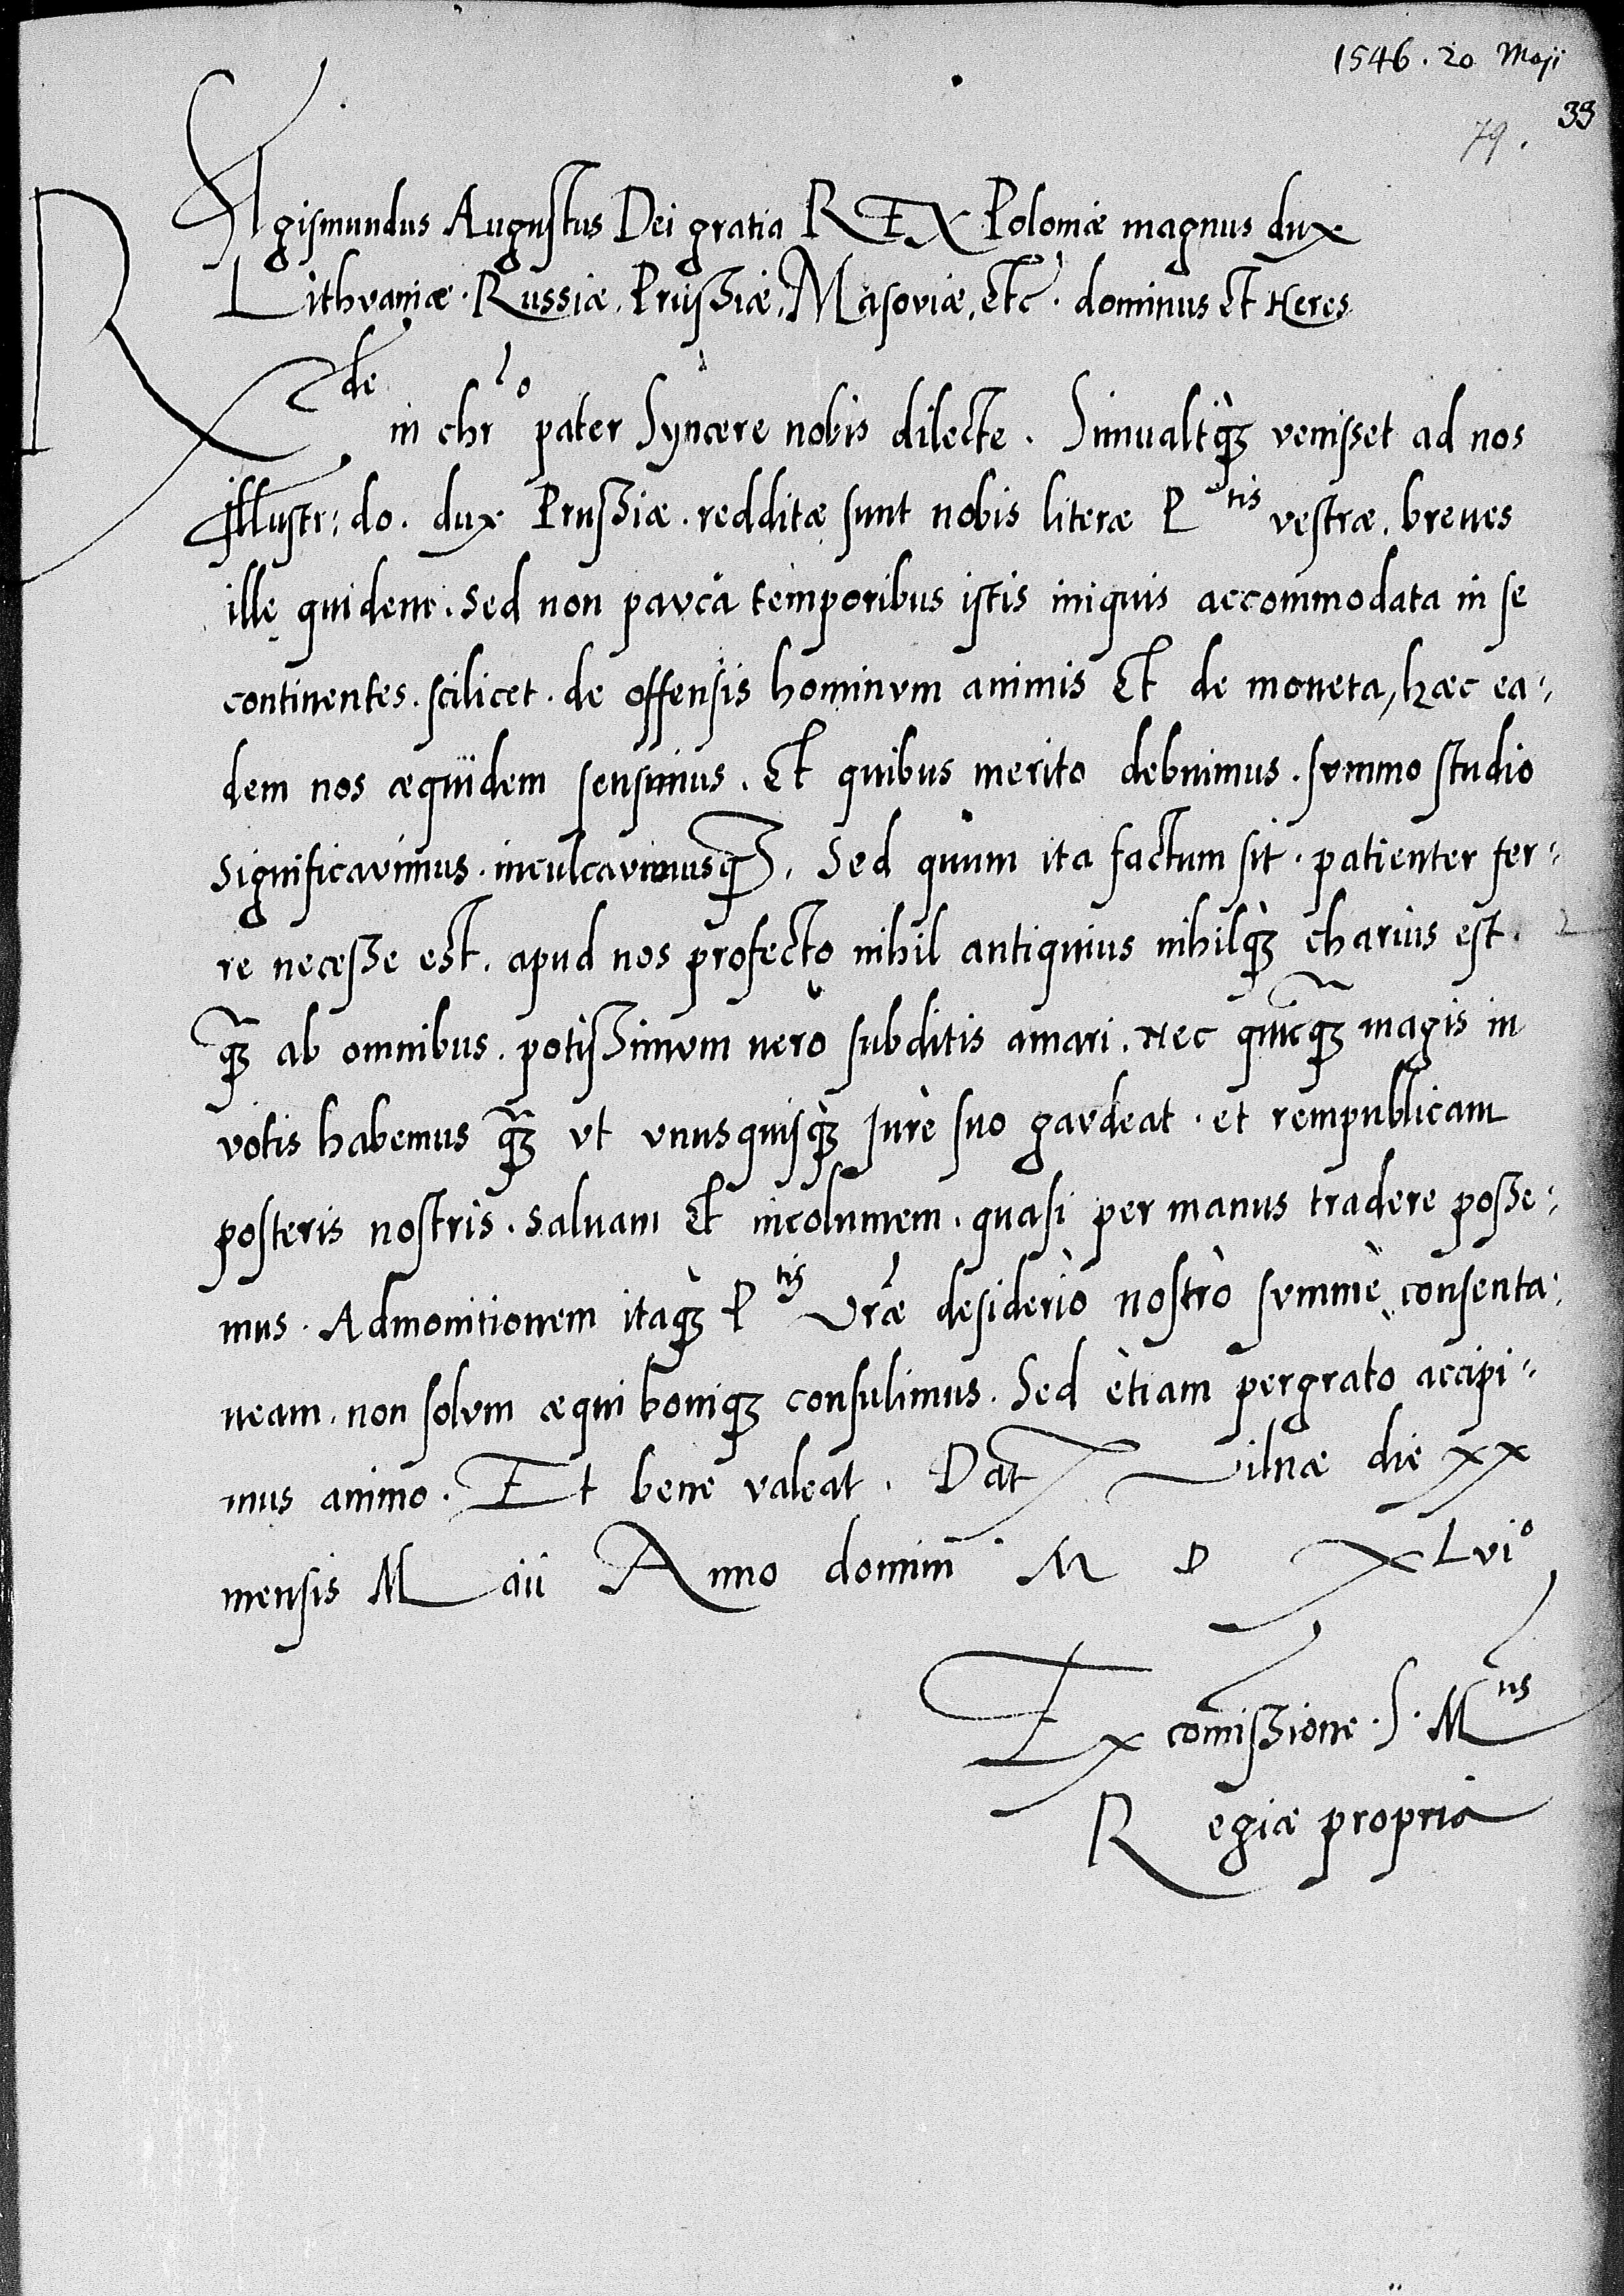 1546. 20 Maji
33
79.
Sigismundus Augustus Dei gratia REX Poloniæ magnus dux
Lithvaniæ. Russiæ. Prussiæ. Masoviæ. etc. dominus et Heres
Rde in chro pater Syncere nobis dilecte. Simualtq3 venisset ad nos
Illustr: do. dux Prussiæ. redditæ sunt nobis literæ P tis vestræ. breues
illę quidem. Sed non pavca temporibus istis iniquis accommodata in se
continentes. scilicet. de offensis hominvm animis et de moneta, hæc ea-
dem nos æquidem sensimus. et quibus merito debuimus. svmmo studio
significavimus. inculcavimusq3. Sed quum ita factum sit. patienter fer-
re necesse est. apud nos profecto nihil antiquius nihilq3 charius est.
q̃3 ab omnibus. potissimvm uero subditis amari. Nec quicq̃3 magis in
votis habemus q̃3 vt vnusquisq3 Jure suo gavdeat. et rempublicam
posteris nostris. saluam et incolumem. quasi per manus tradere posse-
mus. Admonitionem itaq3 P tis Vræ desiderio nostro svmme consenta-
neam. non solvm æqui boniq3 consulimus. Sed etiam pergrato accipi-
mus animo. Et bene valeat. Dat Vilnæ die xx
mensis Maii Anno domini M D XLvi°
Ex comissione. S. M tis
Regiæ propria